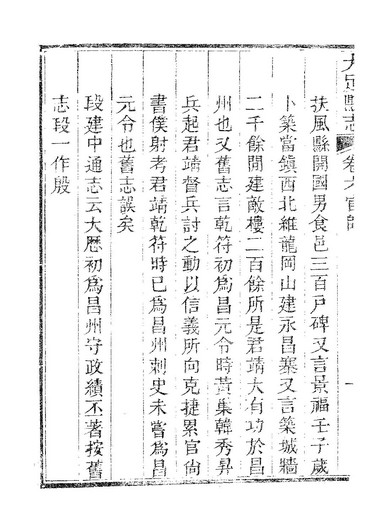 大足縣志 卷六官師 一
扶風縣開國男食邑三百戶碑又言景福壬子歲
卜築當鎮西北維龍岡山建永昌寨又言築城牆
二千餘間建敵樓二百餘所是君靖大有功於昌
州也又舊志言乾符初爲昌元令時黃巢韓秀昇
兵起君靖督兵討之動以信義所向克捷累官尙
書僕射考君靖乾符時已爲昌州刺史未嘗爲昌
元令也舊志誤矣
段建中通志云大歷初爲昌州守政績丕著按舊
志段一作殷